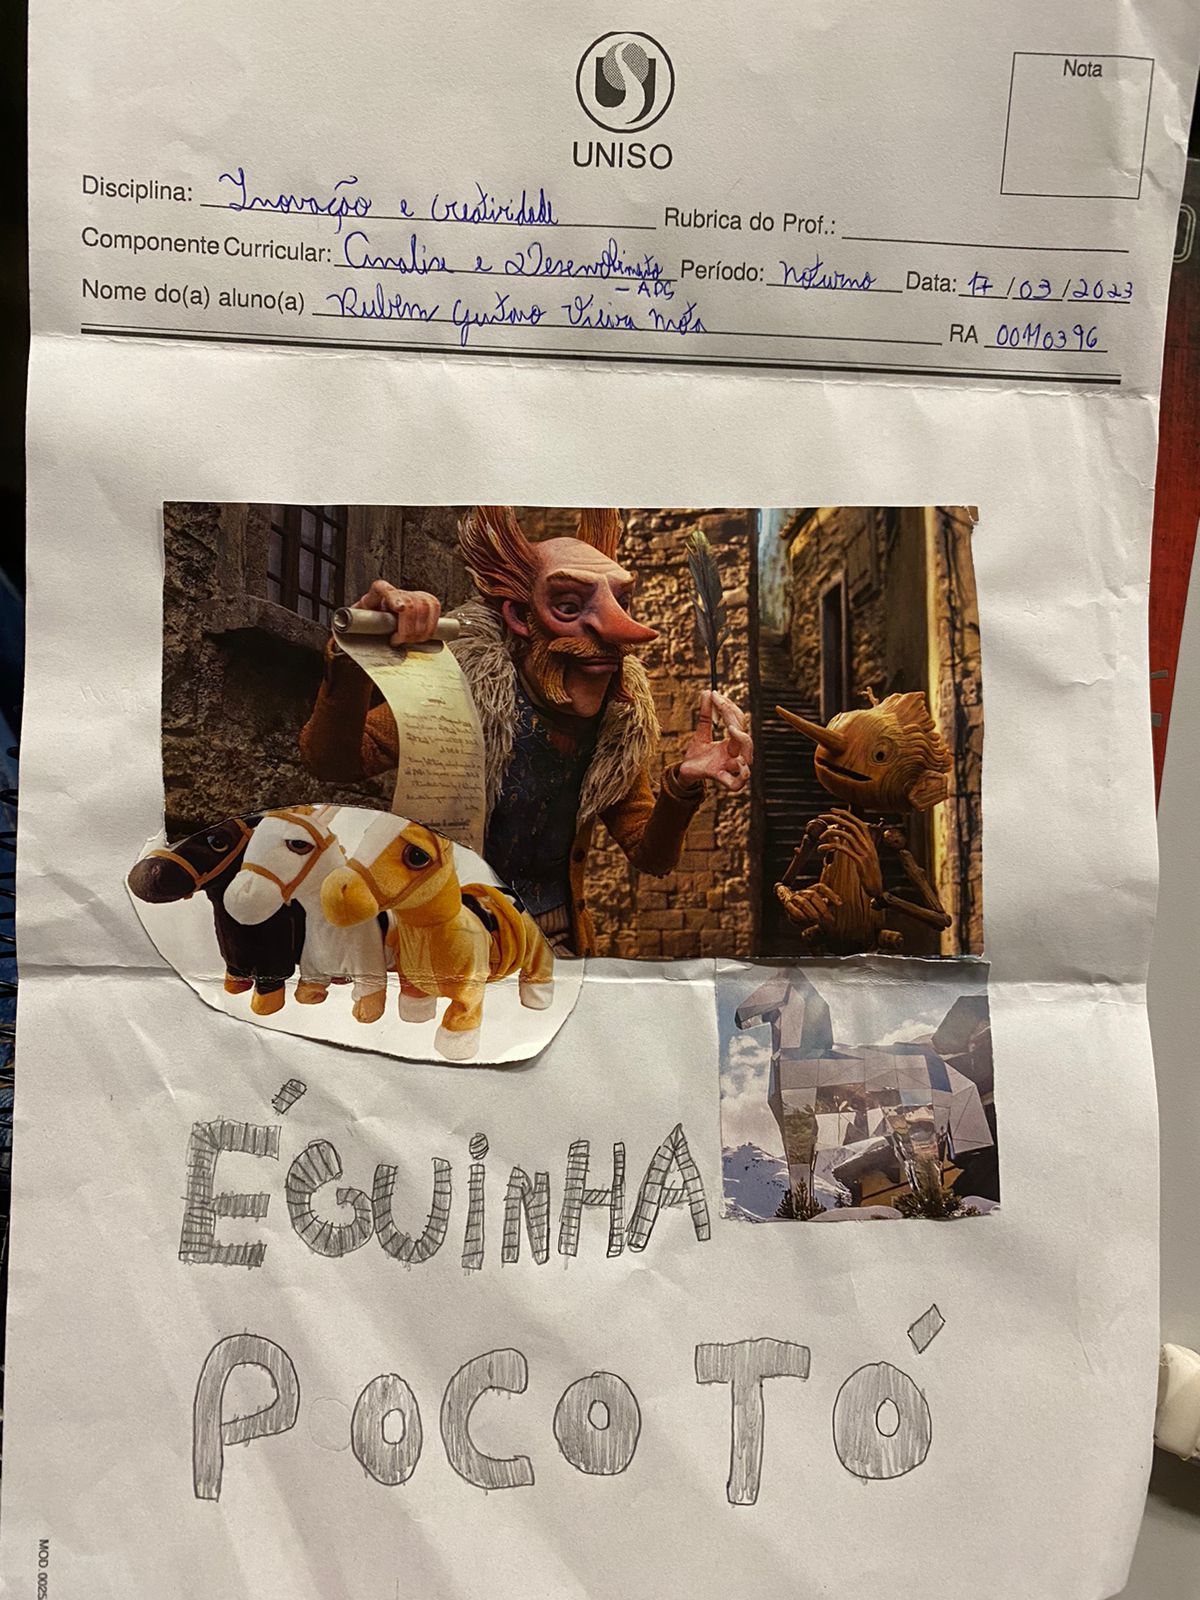 UNISO
Nota
Disciplina: Inovação e Creatividade Rubrica do Prof.:
Componente Curricular: Analise e Desenvolvimento - ADS Período: Noturno Data: 17/03/2023
Nome do(a) aluno(a) Rubem Gustavo Vieira Mota RA 00110396
ÉGUINHA
POCOTÓ
MOD. 0025